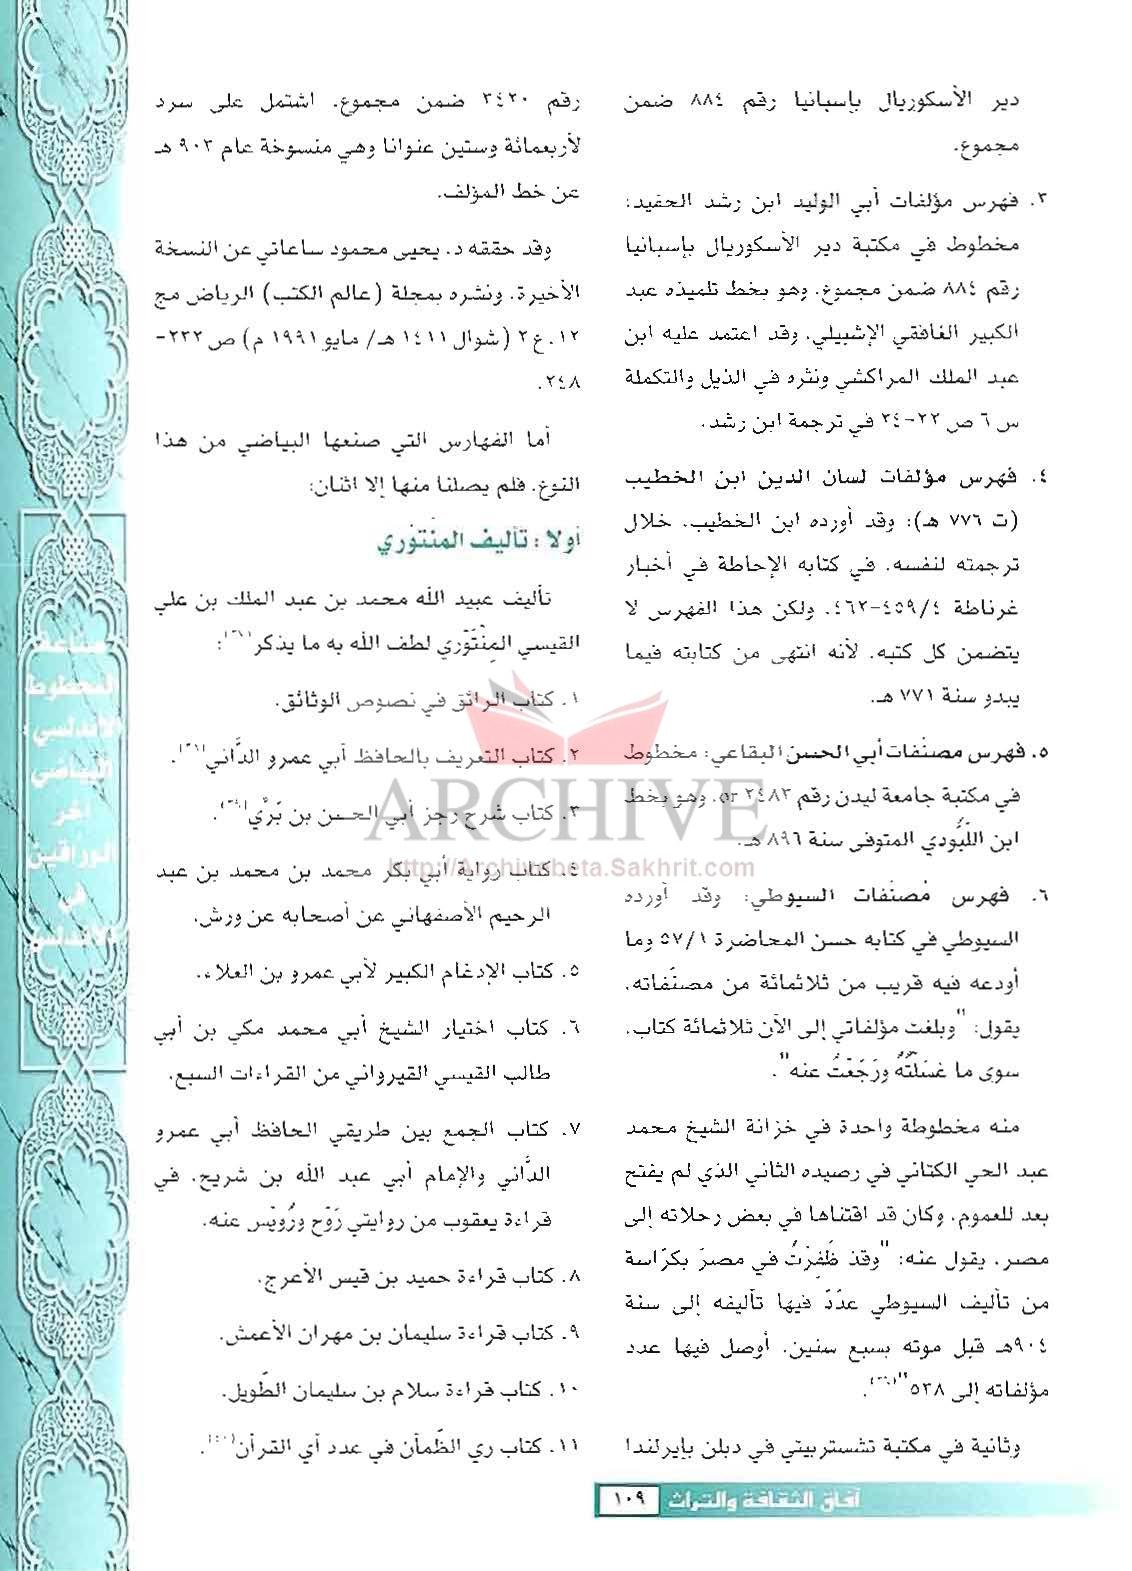 دير الأسكوريال بإسبانيا رقم ٨٨٤ ضمن
مجموع.
٣. فهرس مؤلفات أبي الوليد ابن رشد الحفيد:
مخطوط في مكتبة دير الأسكوريال بإسبانيا
رقم ٨٨٤ ضمن مجموع. وهو بخط تلميذه عبد
الكبير الغافقي الإشبيلي. وقد اعتمد عليه ابن
عبد الملك المراكشي ونثره في الذيل والتكملة
س ٦ ص ٢٢-٢٤ في ترجمة ابن رشد.
٤. فهرس مؤلفات لسان الدين ابن الخطيب
(ت ٧٧٦ هـ): وقد أورده ابن الخطيب. خلال
ترجمته لنفسه. في كتابه الإحاطة في أخبار
غرناطة ٤/٤٥٩-٤٦٢. ولكن هذا الفهرس لا
يتضمن كل كتبه. لأنه انتهى من كتابته فيما
يبدو سنة ٧٧١ هـ.
٥. فهرس مصنّفات أبي الحسن البقاعي: مخطوط
في مكتبة جامعة ليدن رقم or ٢٤٨٣. وهو بخط
ابن اللَّبُّودي المتوفى سنة ٨٩٦ هـ.
٦. فهرس مُصنّفات السيوطي: وقد أورده
السيوطي في كتابه حسن المحاضرة ٥٧/١ وما
أودعه فيه قريب من ثلاثمائة من مصنّفاته.
يقول: "وبلغت مؤلفاتي إلى الآن ثلاثمائة كتاب.
سوى ما غسَلْتُهُ ورَجَعْتُ عنه".
منه مخطوطة واحدة في خزانة الشيخ محمد
عبد الحي الكتاني في رصيده الثاني الذي لم يفتح
بعد للعموم. وكان قد اقتناها في بعض رحلاته إلى
مصر. يقول عنه: "وقد ظَفِرْتُ في مصرَ بكرّاسة
من تأليف السيوطي عدّدَ فيها تأليفه إلى سنة
٩٠٤هـ قبل موته بسبع سنين. أوصل فيها عدد
مؤلفاته إلى ٥٣٨"(٣٦).
وثانية في مكتبة تشستربيتي في دبلن بإيرلندا
رقم ٣٤٢٠ ضمن مجموع. اشتمل على سرد
لأربعمائة وستين عنوانا وهي منسوخة عام ٩٠٣ هـ
عن خط المؤلف.
وقد حققه د. يحيى محمود ساعاتي عن النسخة
الأخيرة. ونشره بمجلة (عالم الكتب) الرياض مج
١٢.ع ٢ (شوال ١٤١١ هـ/ مايو ١٩٩١ م) ص ٢٣٢-
٢٤٨.
أما الفهارس التي صنعها البياضي من هذا
النوع. فلم يصلنا منها إلا اثنان:
أولا : تأليف المنْتوري
تأليف عبيد الله محمد بن عبد الملك بن علي
القيسي المِنْتَوْري لطف الله به ما يذكر:
١. كتاب الرائق في نصوص الوثائق.
٢. كتاب التعريف بالحافظ أبي عمرو الدَّاني.
٣. كتاب شرح رجز أبي الحسن بن بَرِّي.
٤. كتاب رواية أبي بكر محمد بن محمد بن عبد
الرحيم الأصفهاني عن أصحابه عن ورش.
٥. كتاب الإدغام الكبير لأبي عمرو بن العلاء.
٦. كتاب اختيار الشيخ أبي محمد مكي بن أبي
طالب القيسي القيرواني من القراءات السبع.
٧. كتاب الجمع بين طريقي الحافظ أبي عمرو
الدَّاني والإمام أبي عبد الله بن شريح. في
قراءة يعقوب من روايتي رَوْح ورُوَيْس عنه.
٨. كتاب قراءة حميد بن قيس الأعرج.
٩. كتاب قراءة سليمان بن مهران الأعمش.
١٠. كتاب قراءة سلام بن سليمان الطّويل.
١١. كتاب ري الظّمآن في عدد آي القرآن(٤٠).
صناعة
المخطوط
الأندلسي:
البياضي
آخر
الوراقين
في
الأندلس
ARCHIVE
http://Archivebeta.Sakhrit.com
آفاق الثقافة والتراث ١٠٩